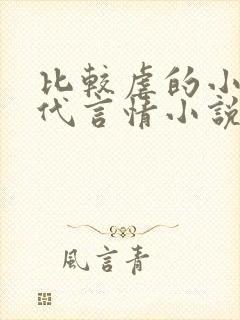 比較虐的小
代言情小說
風言青